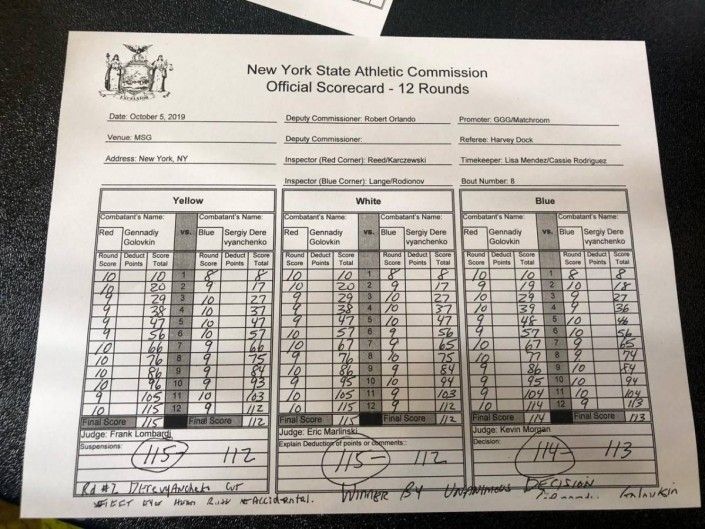 New York State Athletic Commission
Official Scorecard - 12 Rounds
EXCELSIOR
Date: October 5, 2019 Deputy Commissioner: Robert Orlando Promoter: GGG/Matchroom
Venue: MSG Deputy Commissioner: Referee: Harvey Dock
Address: New York, NY Inspector (Red Corner): Reed/Karczewski Timekeeper: Lisa Mendez/Cassie Rodriguez
Inspector (Blue Corner): Lange/Rodionov Bout Number: 8
Yellow White Blue
Combatant's Name: Combatant's Name: Combatant's Name: Combatant's Name: Combatant's Name: Combatant's Name:
Red Gennadiy vs. Blue Sergiy Dere Red Gennadiy vs. Blue Sergiy Dere Red Gennadiy vs. Blue Sergiy Dere
Golovkin vyanchenko Golovkin vyanchenko Golovkin vyanchenko
Round Deduct Score Round Deduct Score Round Deduct Score Round Deduct Score Round Deduct Score Round Deduct Score
Score Points Total Score Points Total Score Points Total Score Points Total Score Points Total Score Points Total
10 10 1 8 8 10 10 1 8 8 10 10 1 8 8
10 20 2 9 17 10 20 2 9 17 9 19 2 10 18
9 29 3 10 27 9 29 3 10 27 10 29 3 9 27
9 38 4 10 37 9 38 4 10 37 10 39 4 9 36
9 47 5 10 47 9 47 5 10 47 9 48 5 10 46
9 56 6 10 57 10 57 6 9 56 9 57 6 10 56
10 66 7 9 66 10 67 7 9 65 10 67 7 9 65
10 76 8 9 75 9 76 8 10 75 10 77 8 9 74
10 86 9 9 84 10 86 9 9 84 9 86 9 10 84
10 96 10 9 93 9 95 10 10 94 9 95 10 10 94
9 105 11 10 103 10 105 11 9 103 9 104 11 10 104
10 115 12 9 112 10 115 12 9 112 10 114 12 9 113
Final Score 115 Final Score 112 Final Score 115 Final Score 112 Final Score 114 Final Score 113
Judge: Frank Lombardi Judge: Eric Marlinski Judge: Kevin Morgan
Suspensions: Explain Deduction of points or comments: Decision:
115 112 115- 112 114- 113
Winner By Unanimous DECISION
Rd #2 Derevyanchenko Cut
Accidental.
Golovkin